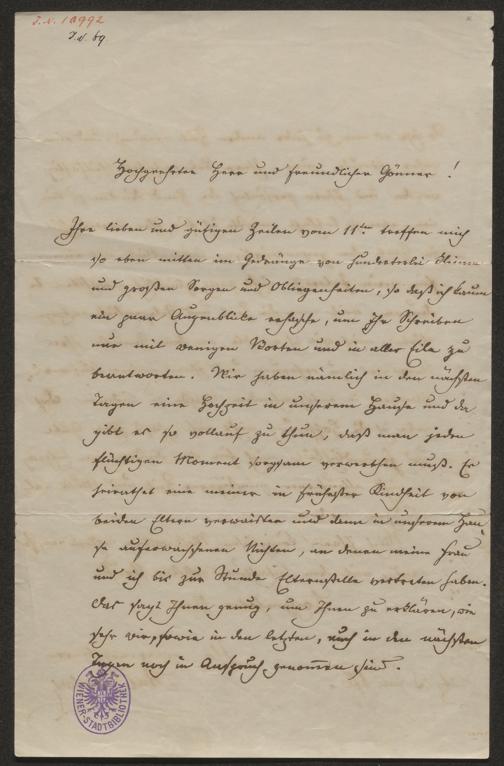 J.N. 10992
J.N. 69
Hochgeehrter Herr und freundlicher Gönner!
Ihre lieben und gütigen Zeilen vom 11ten treffen mich
so eben mitten im Gedränge von hunderterlei kleinen
und großen Sorgen und Obliegenheiten, so daß ich kaum
ein paar Augenblike erhasche, um Ihr Schreiben
nur mit wenigen Worten und in aller Eile zu
beantworten. Wir haben nämlich in den nächsten
Tagen eine Hochzeit in unserem Hause und da
gibt es so vollauf zu thun, daß man jeden
flüchtigen Moment sorgsam verwerthen muß. Es
heirathet eine meiner in frühester Kindheit von
beiden Eltern verwaisten und dann in unserem Hau-
se aufgewachsenen Nichten, an denen meine Frau
und ich bis zur Stunde Elternstelle vertreten haben.
Das sagt Ihnen genug, um Ihnen zu erklären, wie
sehr wir, sowie in den letzten, auch in den nächsten
Tagen noch in Anspruch genommen sind.
WIENER-STADTBIBLIOTHEK